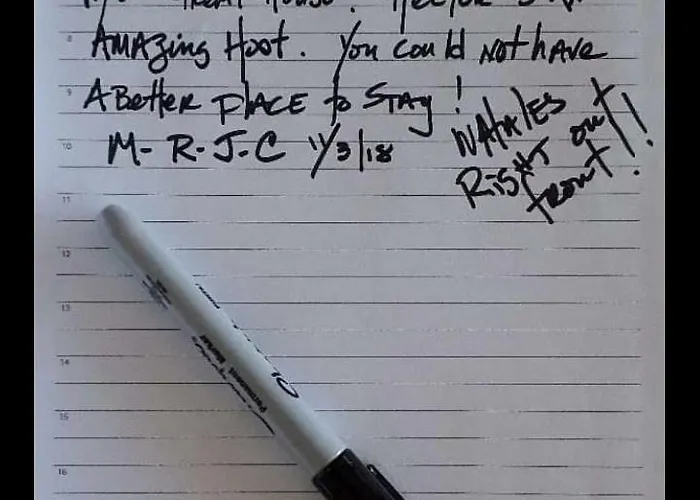 GREAT HOUSE!
8
AMAZING HOST. You could NOT HAVE
9
A BETTER PLACE to STAY!
WHALES
RIGHT OUT
FRONT!!
10
M- R-J-C 11/3/18
11
12
13
14
15
16
Permanent Marker